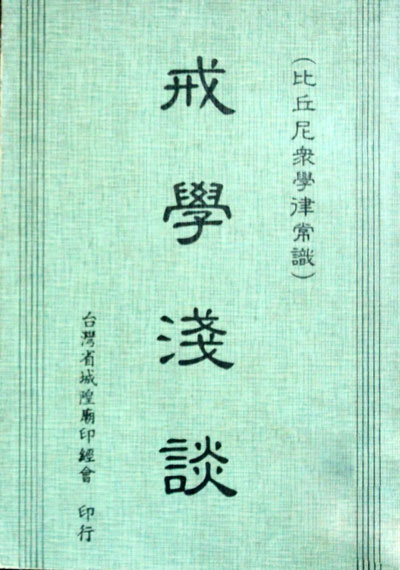 （比丘尼衆學律常識）
戒學淺談
台灣省城隍廟印經會 印行